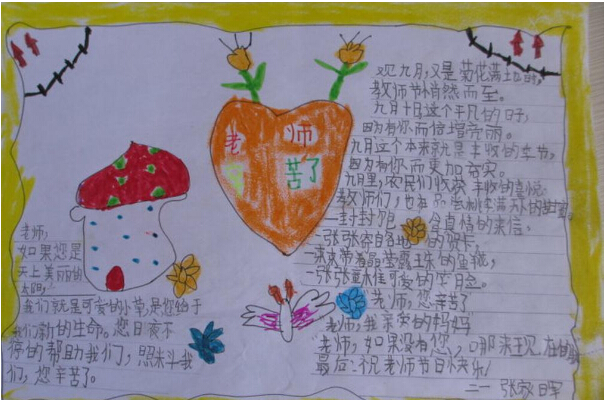 老师
苦了
又九月,又是菊花满
教师节悄然而至。
九月十日,这个平凡的日子,
因为有你而倍增亮丽。
九月这个本来就是丰收的季节,
因为有你而更加夯实。
九月里,农民们收获丰收的喜悦。
教师们,也在品尝桃李满天下的甜蜜。
一封封
含真情的来信,
一张张寄自各地
的贺卡,
一张张
可爱的笑脸。
老师,您辛苦了
老师,我亲爱的妈妈
老师,如果没有您,哪来现在的我
最后:祝老师节日快乐!
二一 张
老师,
如果您是
天上美丽的
太阳,
我们就是可爱的小草,是您给于
我们新的生命。您日夜不
停的帮助我们,照
我
们,您辛苦了。